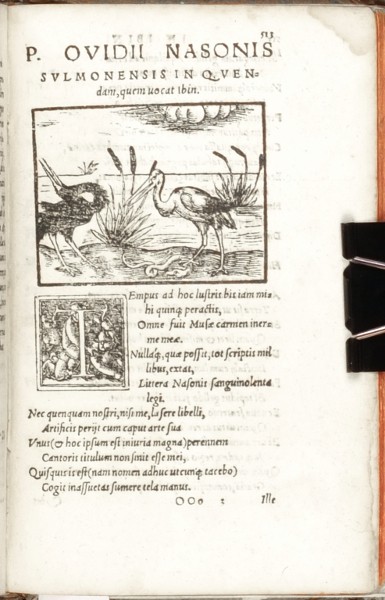 513
P. OVIDII NASONIS
SVLMONENSIS IN QVEN-
dam, quem uocat Ibin.
TEmpus ad hoc lustris bis iam mi-
hi quinq; peractis,
Omne fuit Musæ carmen iner-
me meæ.
Nullaq́;, quæ possit, tot scriptis mil
libus, extat,
Littera Nasonis sanguinolenta
legi.
Nec quenquam nostri, nisi me, læsere libelli,
Artificis perijt cum caput arte sua
Vnus (& hoc ipsum est iniuria magna) perennem
Cantoris titulum non sinit esse mei,
Quisquis is est (nam nomen adhuc utcunq; tacebo)
Cogit inassuetas sumere tela manus.
OOO 2 Ille